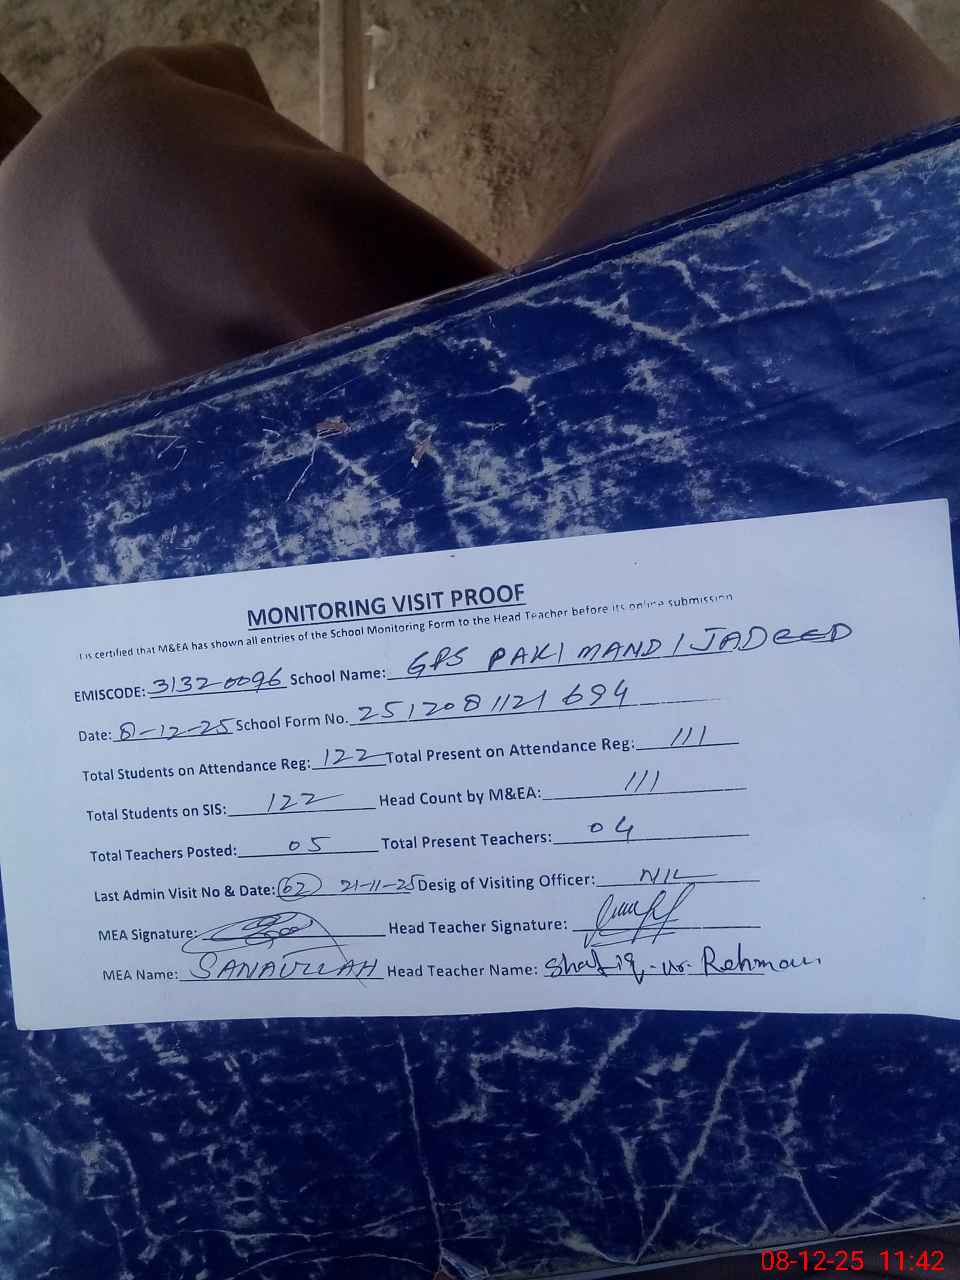 MONITORING VISIT PROOF
It is certified that M&EA has shown all entries of the School Monitoring Form to the Head Teacher before its online submission
EMISCODE: 31320096 School Name: GPS PAKI MANDI JADEED
Date: 8-12-25 School Form No. 251208 1121 694
Total Students on Attendance Reg: 122 Total Present on Attendance Reg: 111
Total Students on SIS: 122 Head Count by M&EA: 111
Total Teachers Posted: 05 Total Present Teachers: 04
Last Admin Visit No & Date: 62 21-11-25 Desig of Visiting Officer: NIL
MEA Signature: Head Teacher Signature:
MEA Name: SANAULLAH Head Teacher Name: Shafiq-ur-Rehman
08-12-25 11:42